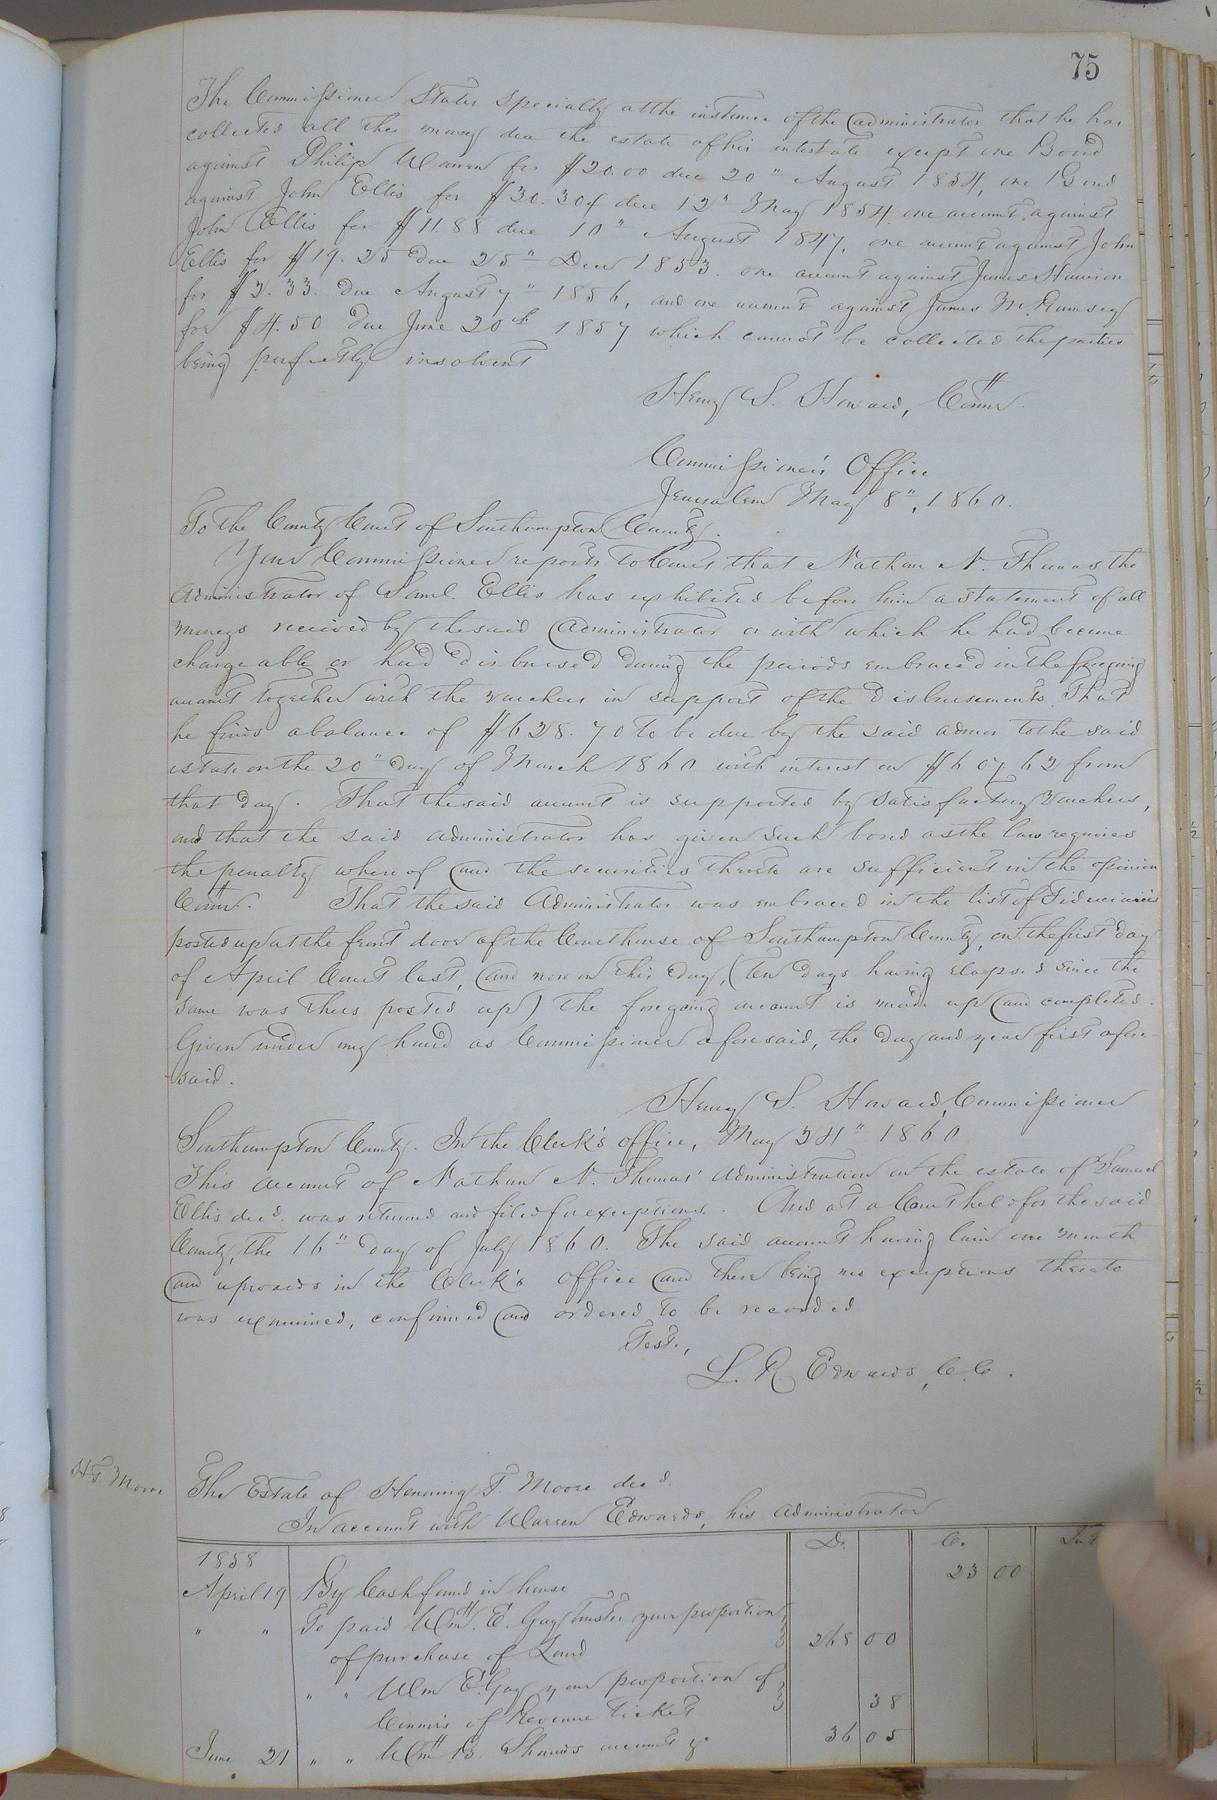 75
The Commissioner States specially at the instance of the administrator that he has
collected all the money due the estate of his intestate except one Bond
against Philip Warren for $20.00 due 20" August 1854, one Bond
against John Ellis for $30.30 due 12" May 1854 one account against
John Ellis for $11.88 due 10" August 1847, one account against John
Ellis for $19.25 due 25" Decr 1853. one account against James
for $2.33. due August 7" 1856, and one account against James McRamsey
for $4.50 due June 20th 1857 which cannot be collected the parties
being perfectly insolvent
Henry S. Howard, Commr.
Commissioner's Office
Jerusalem May 8", 1860.
To the County Court of Southampton County.
Your Commissioner reports to Court that Nathan N. Thomas the
Administrator of Saml. Ellis has exhibited before him a statement of all
moneys received by the said Administrator or with which he had become
chargeable or had disbursed during the periods embraced in the foregoing
account together with the vouchers in support of the disbursements. That
he finds a balance of $628.70 to be due by the said admor to the said
estate on the 20" day of March 1860 with interest on $607 62 from
that day. That the said account is supported by satisfactory vouchers,
and that the said administrator has given such bond as the law requires
the penalty whereof and the securities thereto are sufficient in the opinion
Commr. That the said Administrator was embraced in the list of Fiduciaries
posted up at the front door of the Courthouse of Southampton County, on the first day
of April Court last, and now on this day, (ten days having elapsed since the
same was thus posted up) the foregoing account is made up and completed.
Given under my hand as Commissioner aforesaid, the day and year first afore-
said.
Henry S. Howard, Commissioner
Southampton County. In the Clerk's office, May 24" 1860
This account of Nathan N. Thomas' administration on the estate of Samuel
Ellis decd. was returned and filed for exceptions. And at a Court held for the said
County, the 16" day of July 1860. The said account having lain one month
and upwards in the Clerk's office and there being no exceptions thereto
was examined, confirmed and ordered to be recorded
Teste,
L. R Edwards, C.C.
H.T. Moore
The Estate of Henning T. Moore decd.
In account with Warren Edwards, his administrator
Dr. Cr. Int
1858
April 19 By Cash found in house 23 00
" " To paid Wm. E. Gay trustee your proportion
of purchase of Land 268 00
" " Wm E. Gay your proportion of
Commrs of Revenue Ticket 38
June 21 " " Wm B. Shands account 36 05